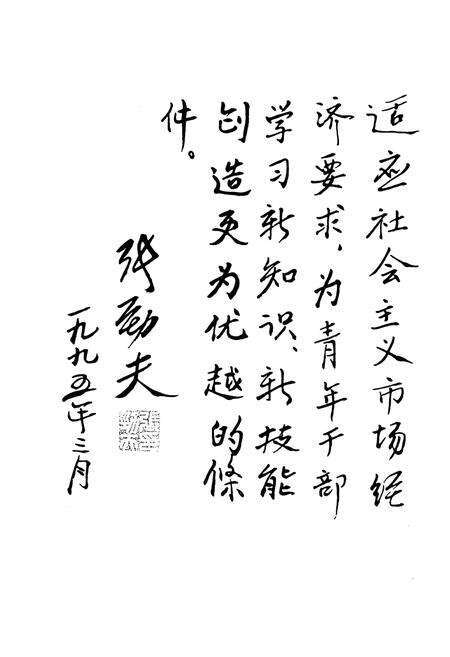 适应社会主义市场经
济要求，为青年干部
学习新知识、新技能
创造更为优越的條
件。
张劲夫
一九九五年三月